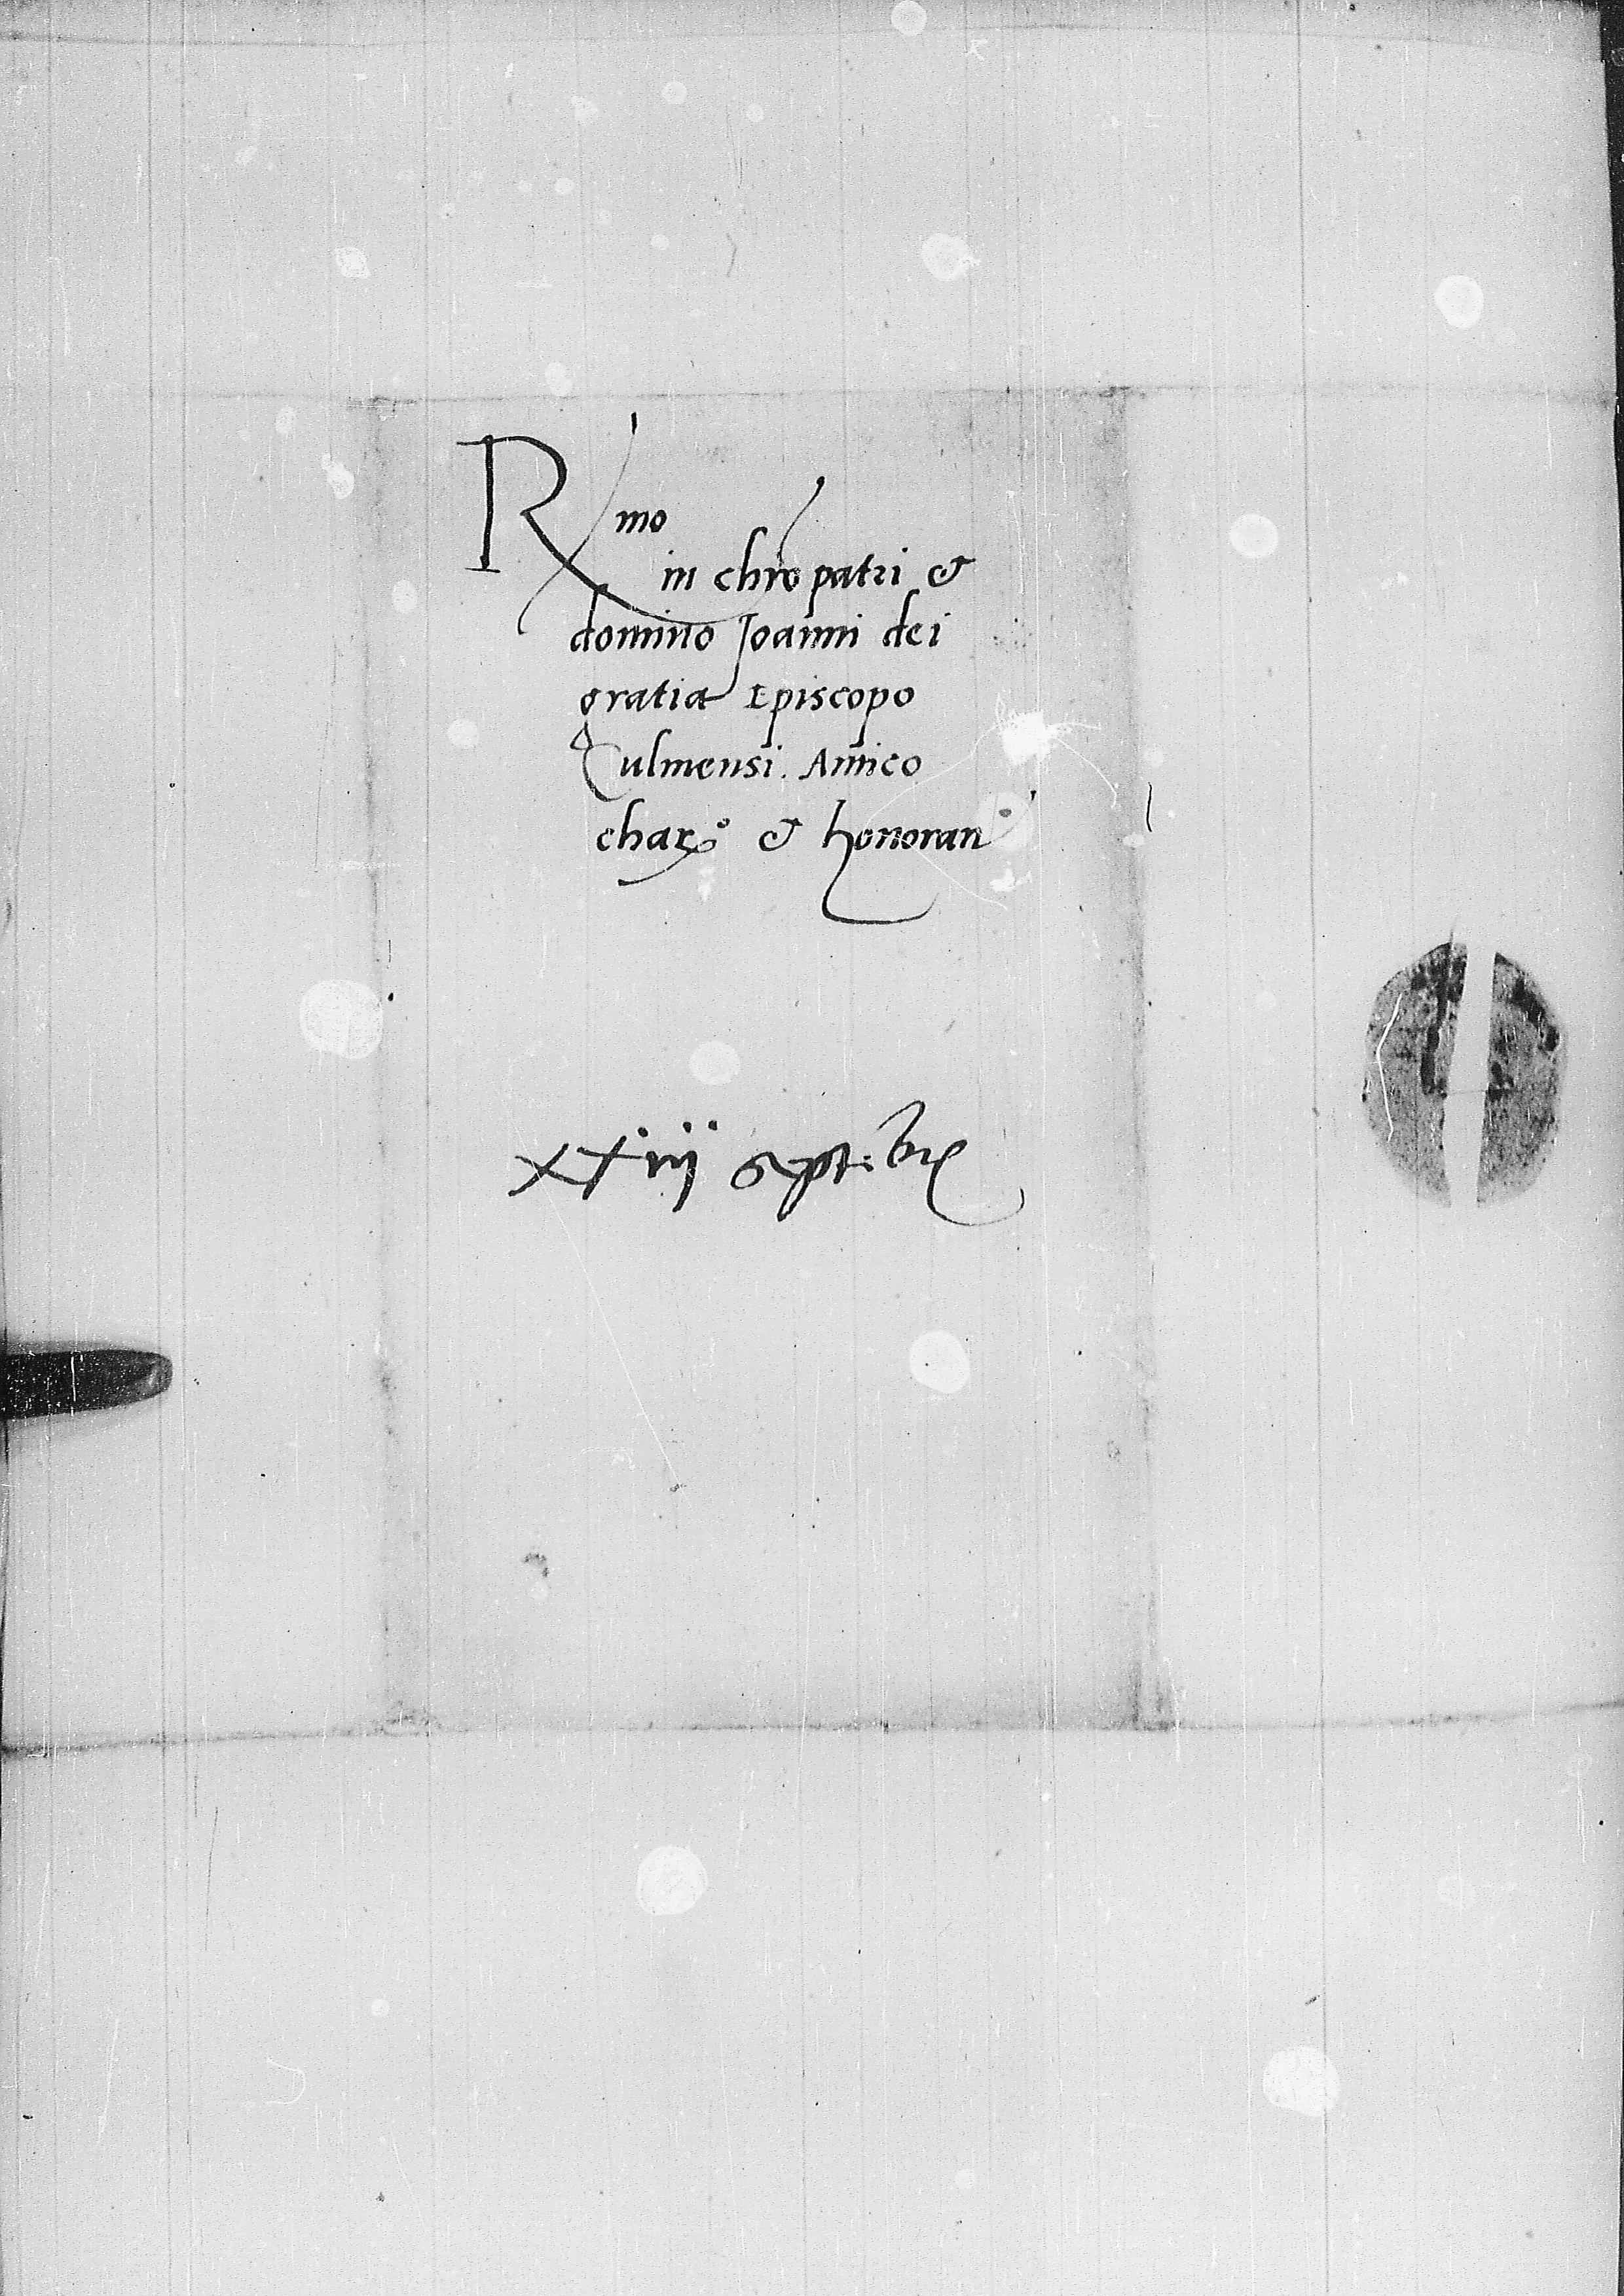 Rmo
in chro patri &
domino Joanni dei
gratia Episcopo
Culmensi. Amico
charo & honoran
XXiij Septēbris